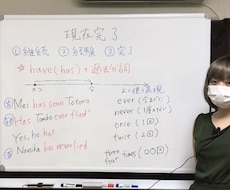 現在完了
①継続 ②経験 ③完了
☆ have(has) + 過去分詞
よく使う表現
Mei has seen Totoro
ever (今までに)
Has Tonbo ever fried
never (1度も〜ない)
Yes, he has
once (1回)
twice (2回)
Nausika has never fried
three
four times (〇〇回)